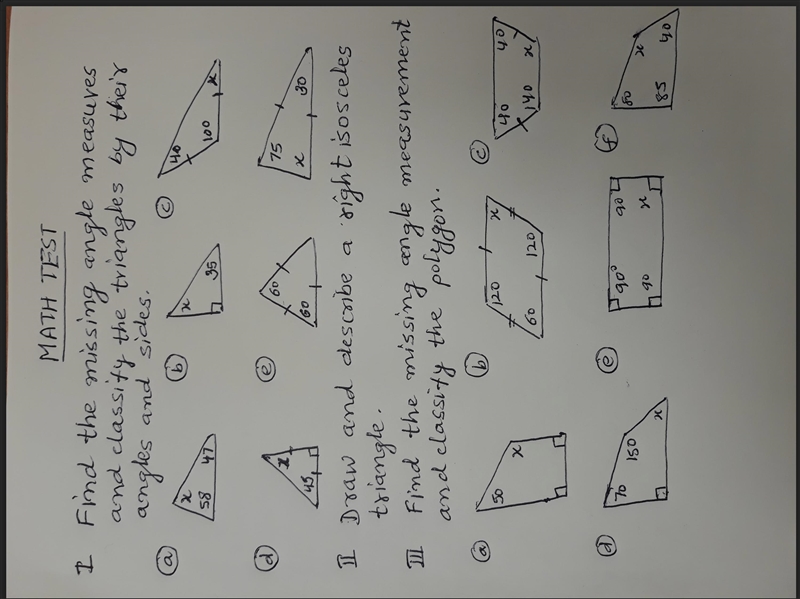 MATH TEST
I Find the missing angle measures
and classify the triangles by their
angles and sides.
a x 58 47
b x 35
c 40 100 x
d x 45
e 60 60
75 x 30
II Draw and describe a right isosceles
triangle.
III Find the missing angle measurement
and classify the polygon.
a 50 x
b 120 x 60 120
c 40 40 140 x
d 70 150 x
e 90° 90 90 x
f 80 x 85 40